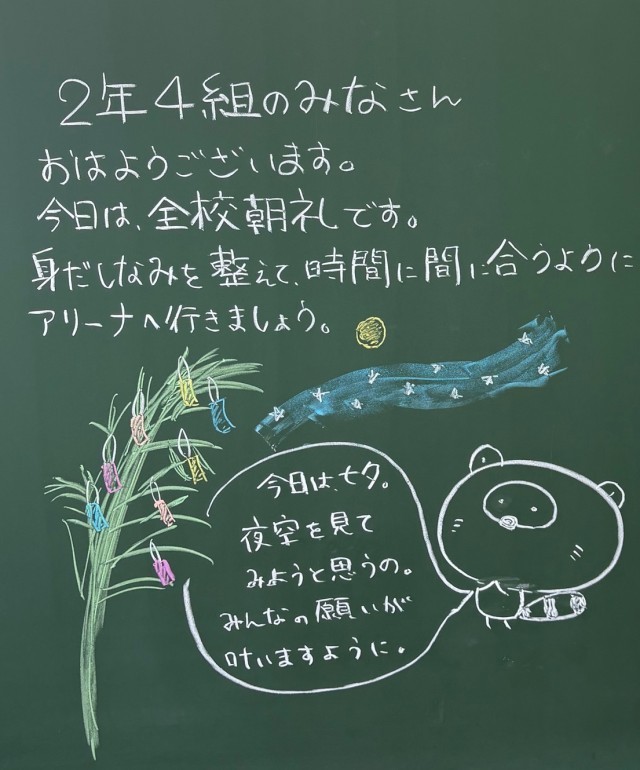 2年4組のみなさん
おはようございます。
今日は、全校朝礼です。
身だしなみを整えて、時間に間に合うように
アリーナへ行きましょう。
今日は、七夕。
夜空を見て
みようと思うの。
みんなの願いが
叶いますように。